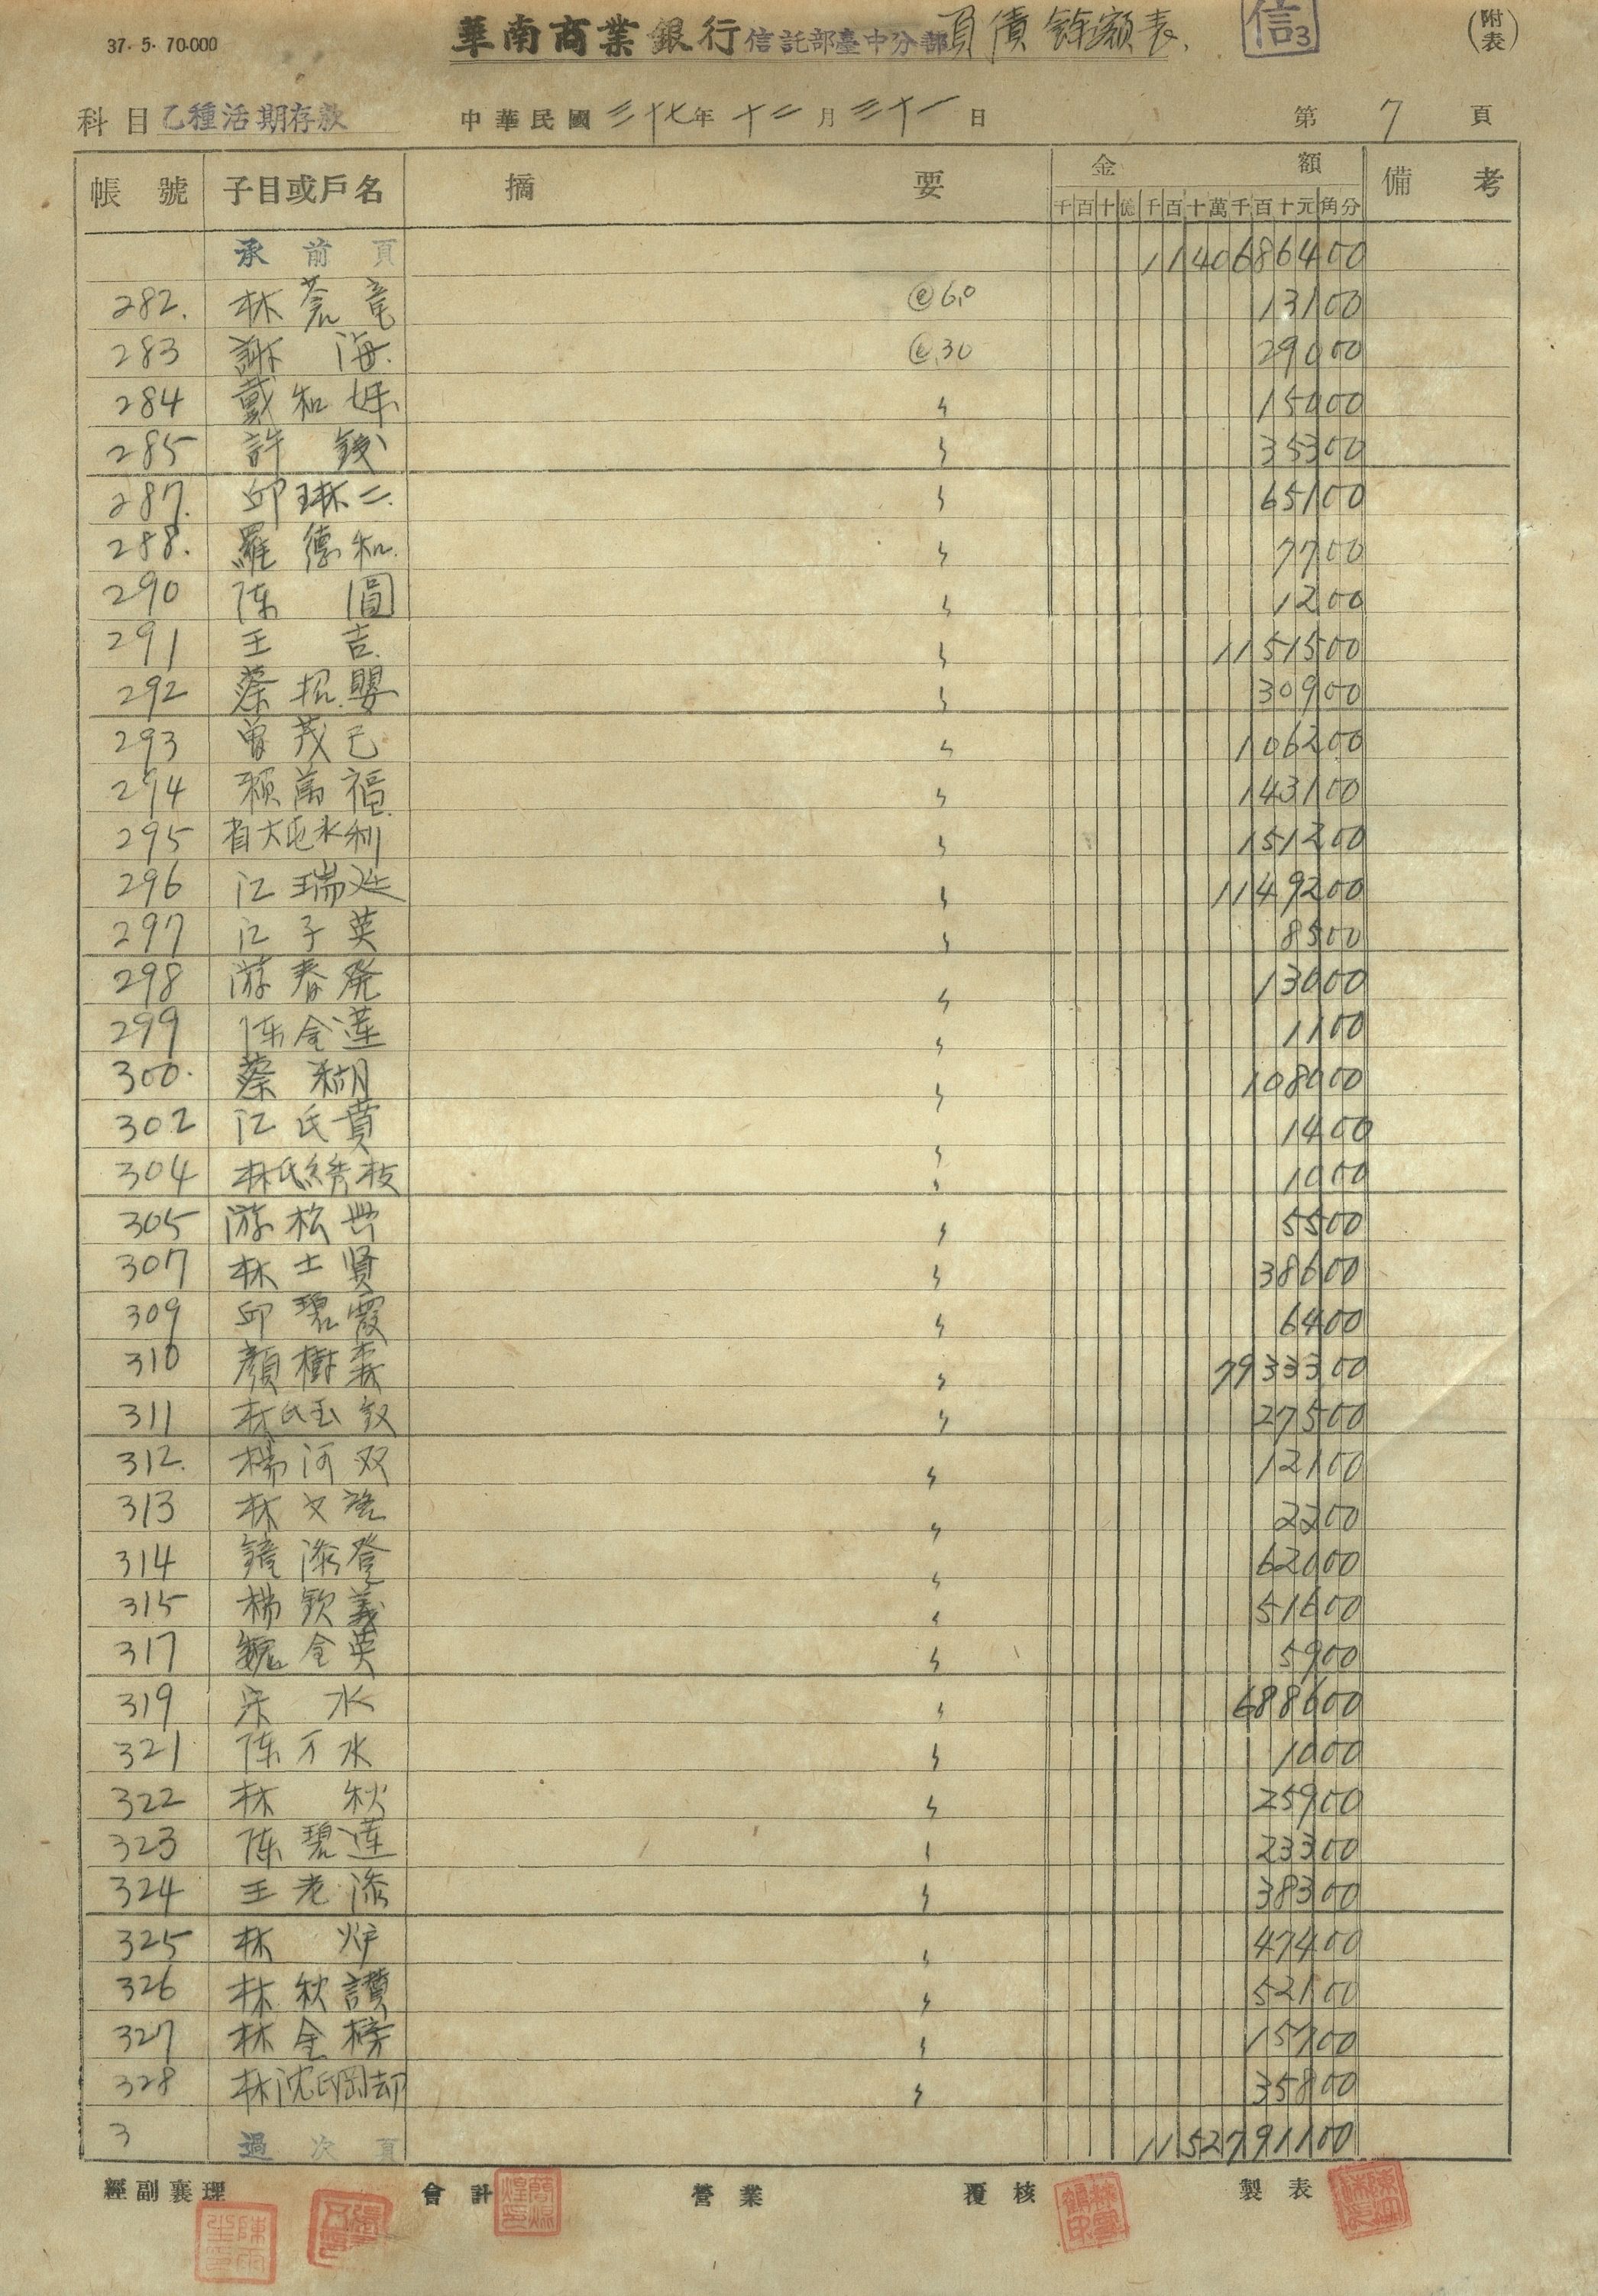 37. 5. 70.000
華南商業銀行信託部臺中分部負債餘額表
信3
(附表)
科目 乙種活期存款 中華民國 三十七年 十二月 三十一日 第 7 頁
帳號 子目或戶名 摘要 金額 備考
千百十億千百十萬千百十元角分
承前頁 1140686400
282. 林蒼竜 @6.0 13100
283 謝海. @.30 29000
284 戴和妹 〃 15000
285 許錢 〃 35300
287. 邱琳二. 〃 65100
288. 羅德和. 〃 7700
290 陈圓 〃 1200
291 王吉. 〃 1151500
292 蔡招嬰 〃 30900
293 曾茂己 〃 106200
294 賴萬福 〃 143100
295 省大屯水利 〃 151200
296 江瑞廷 〃 1149200
297 江子英 〃 8500
298 游春発 〃 13000
299 陈金蓮 〃 1100
300. 蔡糊 〃 108000
302 江氏賁 〃 1400
304 林氏綉枝 〃 1000
305 游松世 〃 5500
307 林士賢 〃 38600
309 邱碧霞 〃 6400
310 顏樹森 〃 7933300
311 林氏玉釵 〃 27500
312. 楊河双 〃 12100
313 林文 〃 2200
314 添登 〃 62000
315 楊欽義 〃 51600
317 魏金英 〃 5900
319 宋水 〃 688600
321 陈万水 〃 1000
322 林秋 〃 25900
323 陈碧蓮 〃 23300
324 王老添 〃 38300
325 林炉 〃 47400
326 林秋讃 〃 52100
327 林金榜 〃 15700
328 林沈氏岡却 〃 35800
3 過次頁 1152791100
經副襄理 會計 營業 覆核 製表